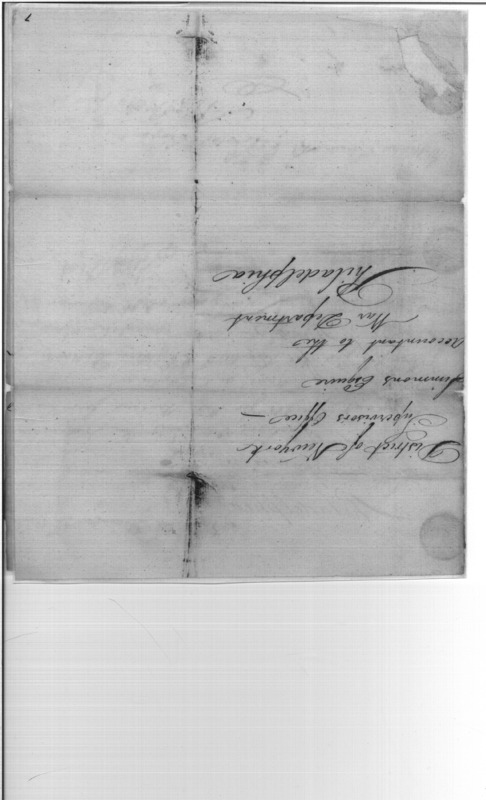 District of Newyork
Supervisors Office —
Simmons Esquire
accountant to the
War Department
Philadelphia